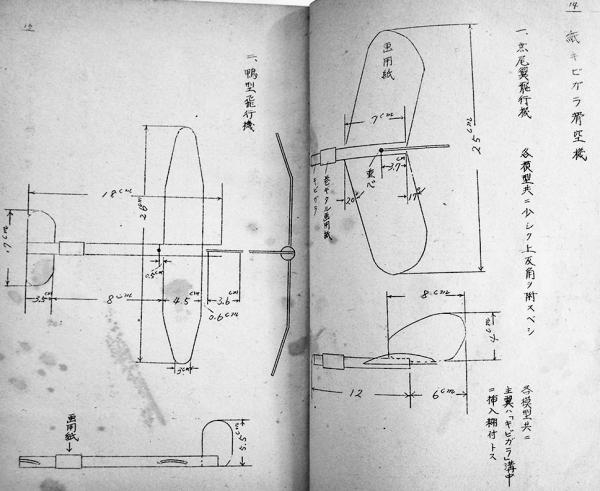 14
紙キビガラ滑空機
一、無尾翼飛行機
各模型共ニ少シク上反角ヲ附スベシ
各模型共ニ
主翼ハ「キビガラ」溝中
ニ挿入糊付トス
画用紙
7cm
25cm
3.7cm
重心
20°
17°
巻キタル画用紙
キビガラ
8cm
7cm
12
6cm
15
二、鴨型飛行機
18cm
17cm
3.5cm
8cm
0.5cm
4.5cm
3.6cm
0.6cm
3cm
画用紙
5.5cm